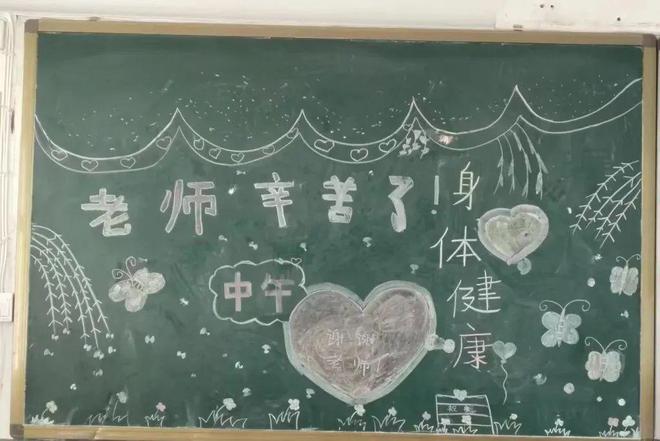 老师辛苦了!
身体健康
中午
谢谢
老师